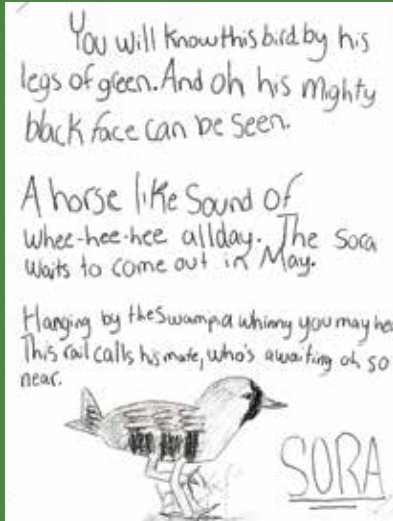 You will Know this bird by his
legs of green. And oh his mighty
black face can be seen.
A horse like Sound of
whee-hee-hee allday. The Sora
waits to come out in May.
Hanging by the Swamp a whinny you may hea
This rail calls his mate, who's awaiting oh so
near.
SORA